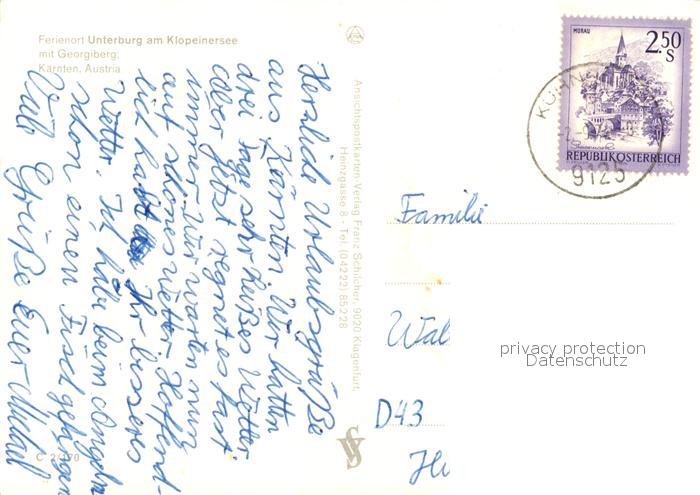 Ferienort Unterburg am Klopeinersee
mit Georgiberg,
Kärnten, Austria
Herzliche Urlaubsgrüße
aus Kärnten. Wir hatten
drei Tage sehr heißes Wetter
aber jetzt regnet es fast
immer. Wir warten nun
auf schönes Wetter. Hoffend-
lich habt Ihr besseres
Wetter. Ich habe beim Angeln
schon einen Fisch gefangen
Viele Grüße Euer
C 2/170
Ansichtspostkarten-Verlag Franz Schilcher, 9020 Klagenfurt,
Heinzgasse 8 - Tel. (04222) 85228
MURAU
2.50
S
REPUBLIK ÖSTERREICH
9125
Familie
Wal
D43
privacy protection
Datenschutz